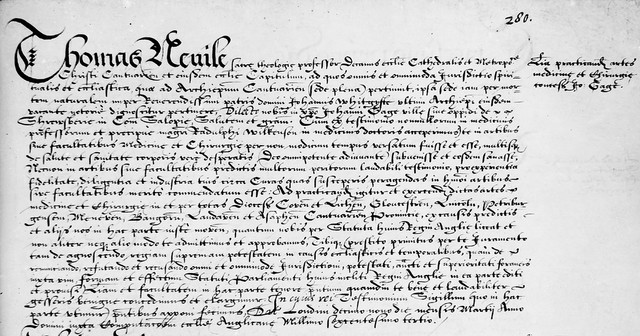 280.
Thomas Nevile sacre theologie professor Decanus ecclie Cathedralis et Metropo
Christi Cantuarien et eiusdem ecclie Capitulum, ad quos omnis et omnimoda Jurisdictio spiri
tualis et ecclastica que ad Archiepum Cantuarien sede plena pertinuit, ipsa sede iam per mor
tem naturalem Reverendissimi patris domini Johannis Whitgifte ultimi Archiepi eiusdem
vacante notorie dignoscitur pertinere, Dilecto nobis in xpo Johanni Gage ville sive oppidi de
Shrewsberie in Com Salopie, Salutem gratiam. Cum ex testimonio nonnullorum in medicinis
professorum et precipue magri Radulphi Wilkenson in medicinis doctoris accepimus te in artibus
sive facultatibus Medicine et Chirurgie per non modicum tempus versatum fuisse et esse, multisque
de salute et sanitate corporis vere desperatis Deo competente adiuvante subvenisse et eosdem sanasse,
Necnon in artibus sive facultatibus predictis multorum peritorum laudabili testimonio, pro experientia
fidelitate, diligentia et industria tuis circa Curas quas susceperis peragendas in huiusmodi artibus
sive facultatibus merito commendatum esse. Ad practicand igitur et exercend dictas artes
medicine et Chirurgie in et per totas Dioceses Coven et Lichen, Gloucestren, Lincoln, Petribur
gensem, Meneven, Bangoren, Landaven et Asaphen Cantuarien Provincie, ex causis predictis
et alijs nos in hac parte iuste moven, quantum nobis per Statuta huius Regni Anglie liceat et
non aliter neque alio modo te admittimus et approbamus, Tibique prestito primitus per te Juramento
tam de agnoscendo regiam supremam potestatem in causis ecclasticis et temporalibus, quam de
renuntiando, refutando et recusando omni et omnimode Jurisdictioni, potestati, aucti et superioritati foraneis
iuxta vim formam et effectum Statuti Parliamenti huius incliti Regni Anglie in ea parte editi
et provisi Licentiam et facultatem in hac parte tenore presentium quamdiu te bene et laudabiliter
gesseris benigne concedimus et elargimur. In cuius rei Testimonium Sigillum quo in hac
parte utimur presentibus apponi fecimus, Dat Londini decimo nono die mensis Martij Anno
Domini iuxta Computationem eccliae Anglicane Millimo sexcentesimo tertio.
Lra practicandi artes
medicine et Chirurgie
concess Jo. Gage.